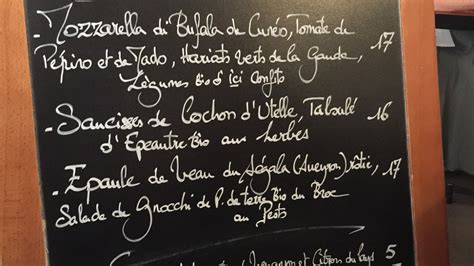 - Mozzarella di Bufala de Cunéo, Tomate de
Pépino et de Mado, Haricots verts de la Gaude, 17
Légumes Bio d'ici confits
- Saucisses de Cochon d'Utelle, Taboulé 16
d'Epeautre Bio aux herbes
- Epaule de Veau du Ségala (Aveyron) rôtie, 17
Salade de Gnocchi de P. de terre Bio du Broc
au Pesto
et Citron du pays 5